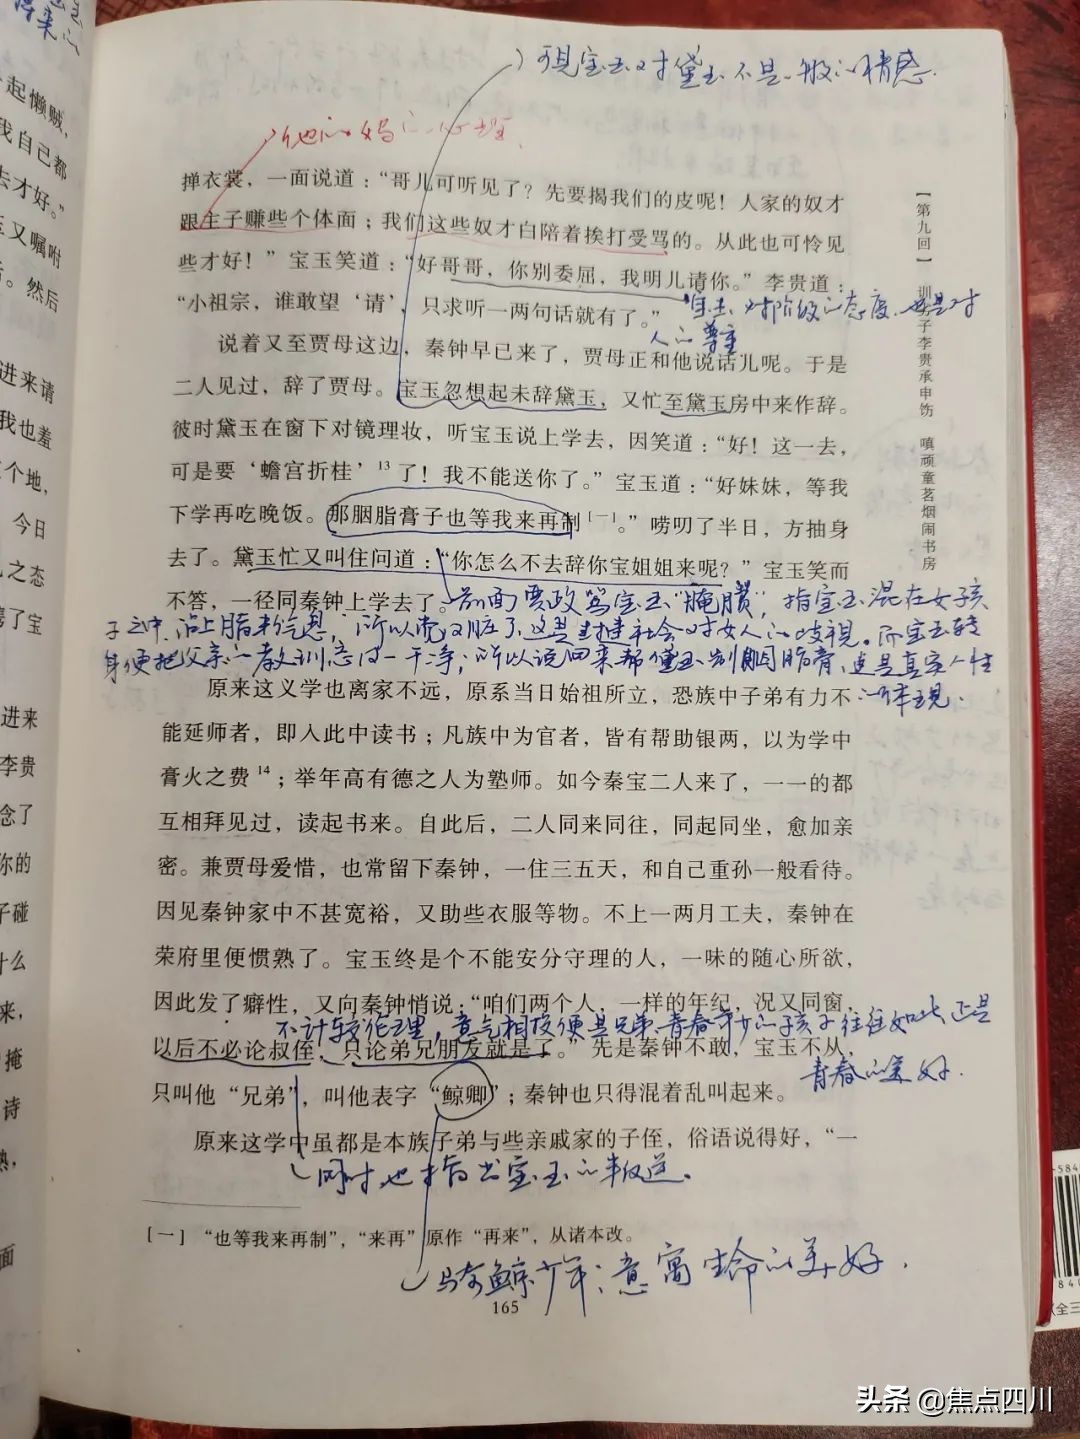 起懒贼,
我自己都
去才好。”
又嘱咐
。然后
进来请
我也羞
个地,
今日
之态
了宝
进来
李贵
念了
你的
子碰
什么
来,
掩
诗
面
可见宝玉对黛玉不是一般的情感.
他的妈的心理.
掸衣裳,一面说道:“哥儿可听见了?先要揭我们的皮呢!人家的奴才
跟主子赚些个体面;我们这些奴才白陪着挨打受骂的。从此也可怜见
些才好!”宝玉笑道:“好哥哥,你别委屈,我明儿请你。”李贵道:
“小祖宗,谁敢望‘请’,只求听一两句话就有了。”
宝玉对阶级的态度,也是对
人的尊重
说着又至贾母这边,秦钟早已来了,贾母正和他说话儿呢。于是
二人见过,辞了贾母。宝玉忽想起未辞黛玉,又忙至黛玉房中来作辞。
彼时黛玉在窗下对镜理妆,听宝玉说上学去,因笑道:“好!这一去,
可是要‘蟾宫折桂’13了!我不能送你了。”宝玉道:“好妹妹,等我
下学再吃晚饭。那胭脂膏子也等我来再制[一]。”唠叨了半日,方抽身
去了。黛玉忙又叫住问道:“你怎么不去辞你宝姐姐来呢?”宝玉笑而
不答,一径同秦钟上学去了。
前面贾政骂宝玉“腌臜”,指宝玉混在女孩
子之中,沾上脂粉气息,所以觉得脏了,这是封建社会对女人的歧视。而宝玉转
身便把父亲的教训忘得一干净;所以说回来帮黛玉制胭脂膏,这是真实人性
的体现.
原来这义学也离家不远,原系当日始祖所立,恐族中子弟有力不
能延师者,即入此中读书;凡族中为官者,皆有帮助银两,以为学中
膏火之费14;举年高有德之人为塾师。如今秦宝二人来了,一一的都
互相拜见过,读起书来。自此后,二人同来同往,同起同坐,愈加亲
密。兼贾母爱惜,也常留下秦钟,一住三五天,和自己重孙一般看待。
因见秦钟家中不甚宽裕,又助些衣服等物。不上一两月工夫,秦钟在
荣府里便惯熟了。宝玉终是个不能安分守理的人,一味的随心所欲,
因此发了癖性,又向秦钟悄说:“咱们两个人,一样的年纪,况又同窗,
不计较伦理,意气相投便是兄弟.青春年少的孩子往往如此,正是
青春的美好.
以后不必论叔侄,只论弟兄朋友就是了。”先是秦钟不敢,宝玉不从,
只叫他“兄弟”,叫他表字“鲸卿”;秦钟也只得混着乱叫起来。
原来这学中虽都是本族子弟与些亲戚家的子侄,俗语说得好,“一
同时,也指出宝玉的叛逆。
[一]“也等我来再制”,“来再”原作“再来”,从诸本改。
骑鲸少年;意寓生命的美好.
165
【第九回】 训子李贵承申饬 嗔顽童茗烟闹书房
头条 @焦点四川